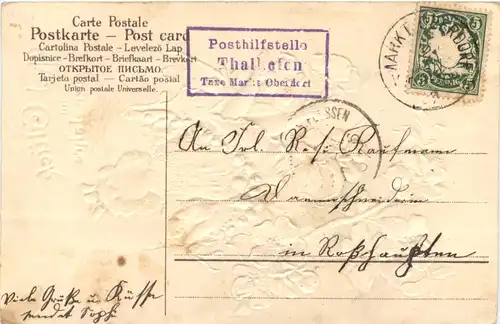 Carte Postale
Postkarte – Post card
Cartolina Postale – Levelező Lap
Dopisnice – Brefkort – Briefkaart – Brevkort
ОТКРЫТОЕ ПИСЬМО.
Tarjeta postal – Cartão postal
Union postale Universelle.
Posthilfstelle
Thalhofen
Taxe Markt Oberdorf
MARKT OBERDORF
5
5
FÜSSEN
An Frl. Rosi Kaufmann
in Roßhaupten
Viele Grüße u. Küsse
sendet